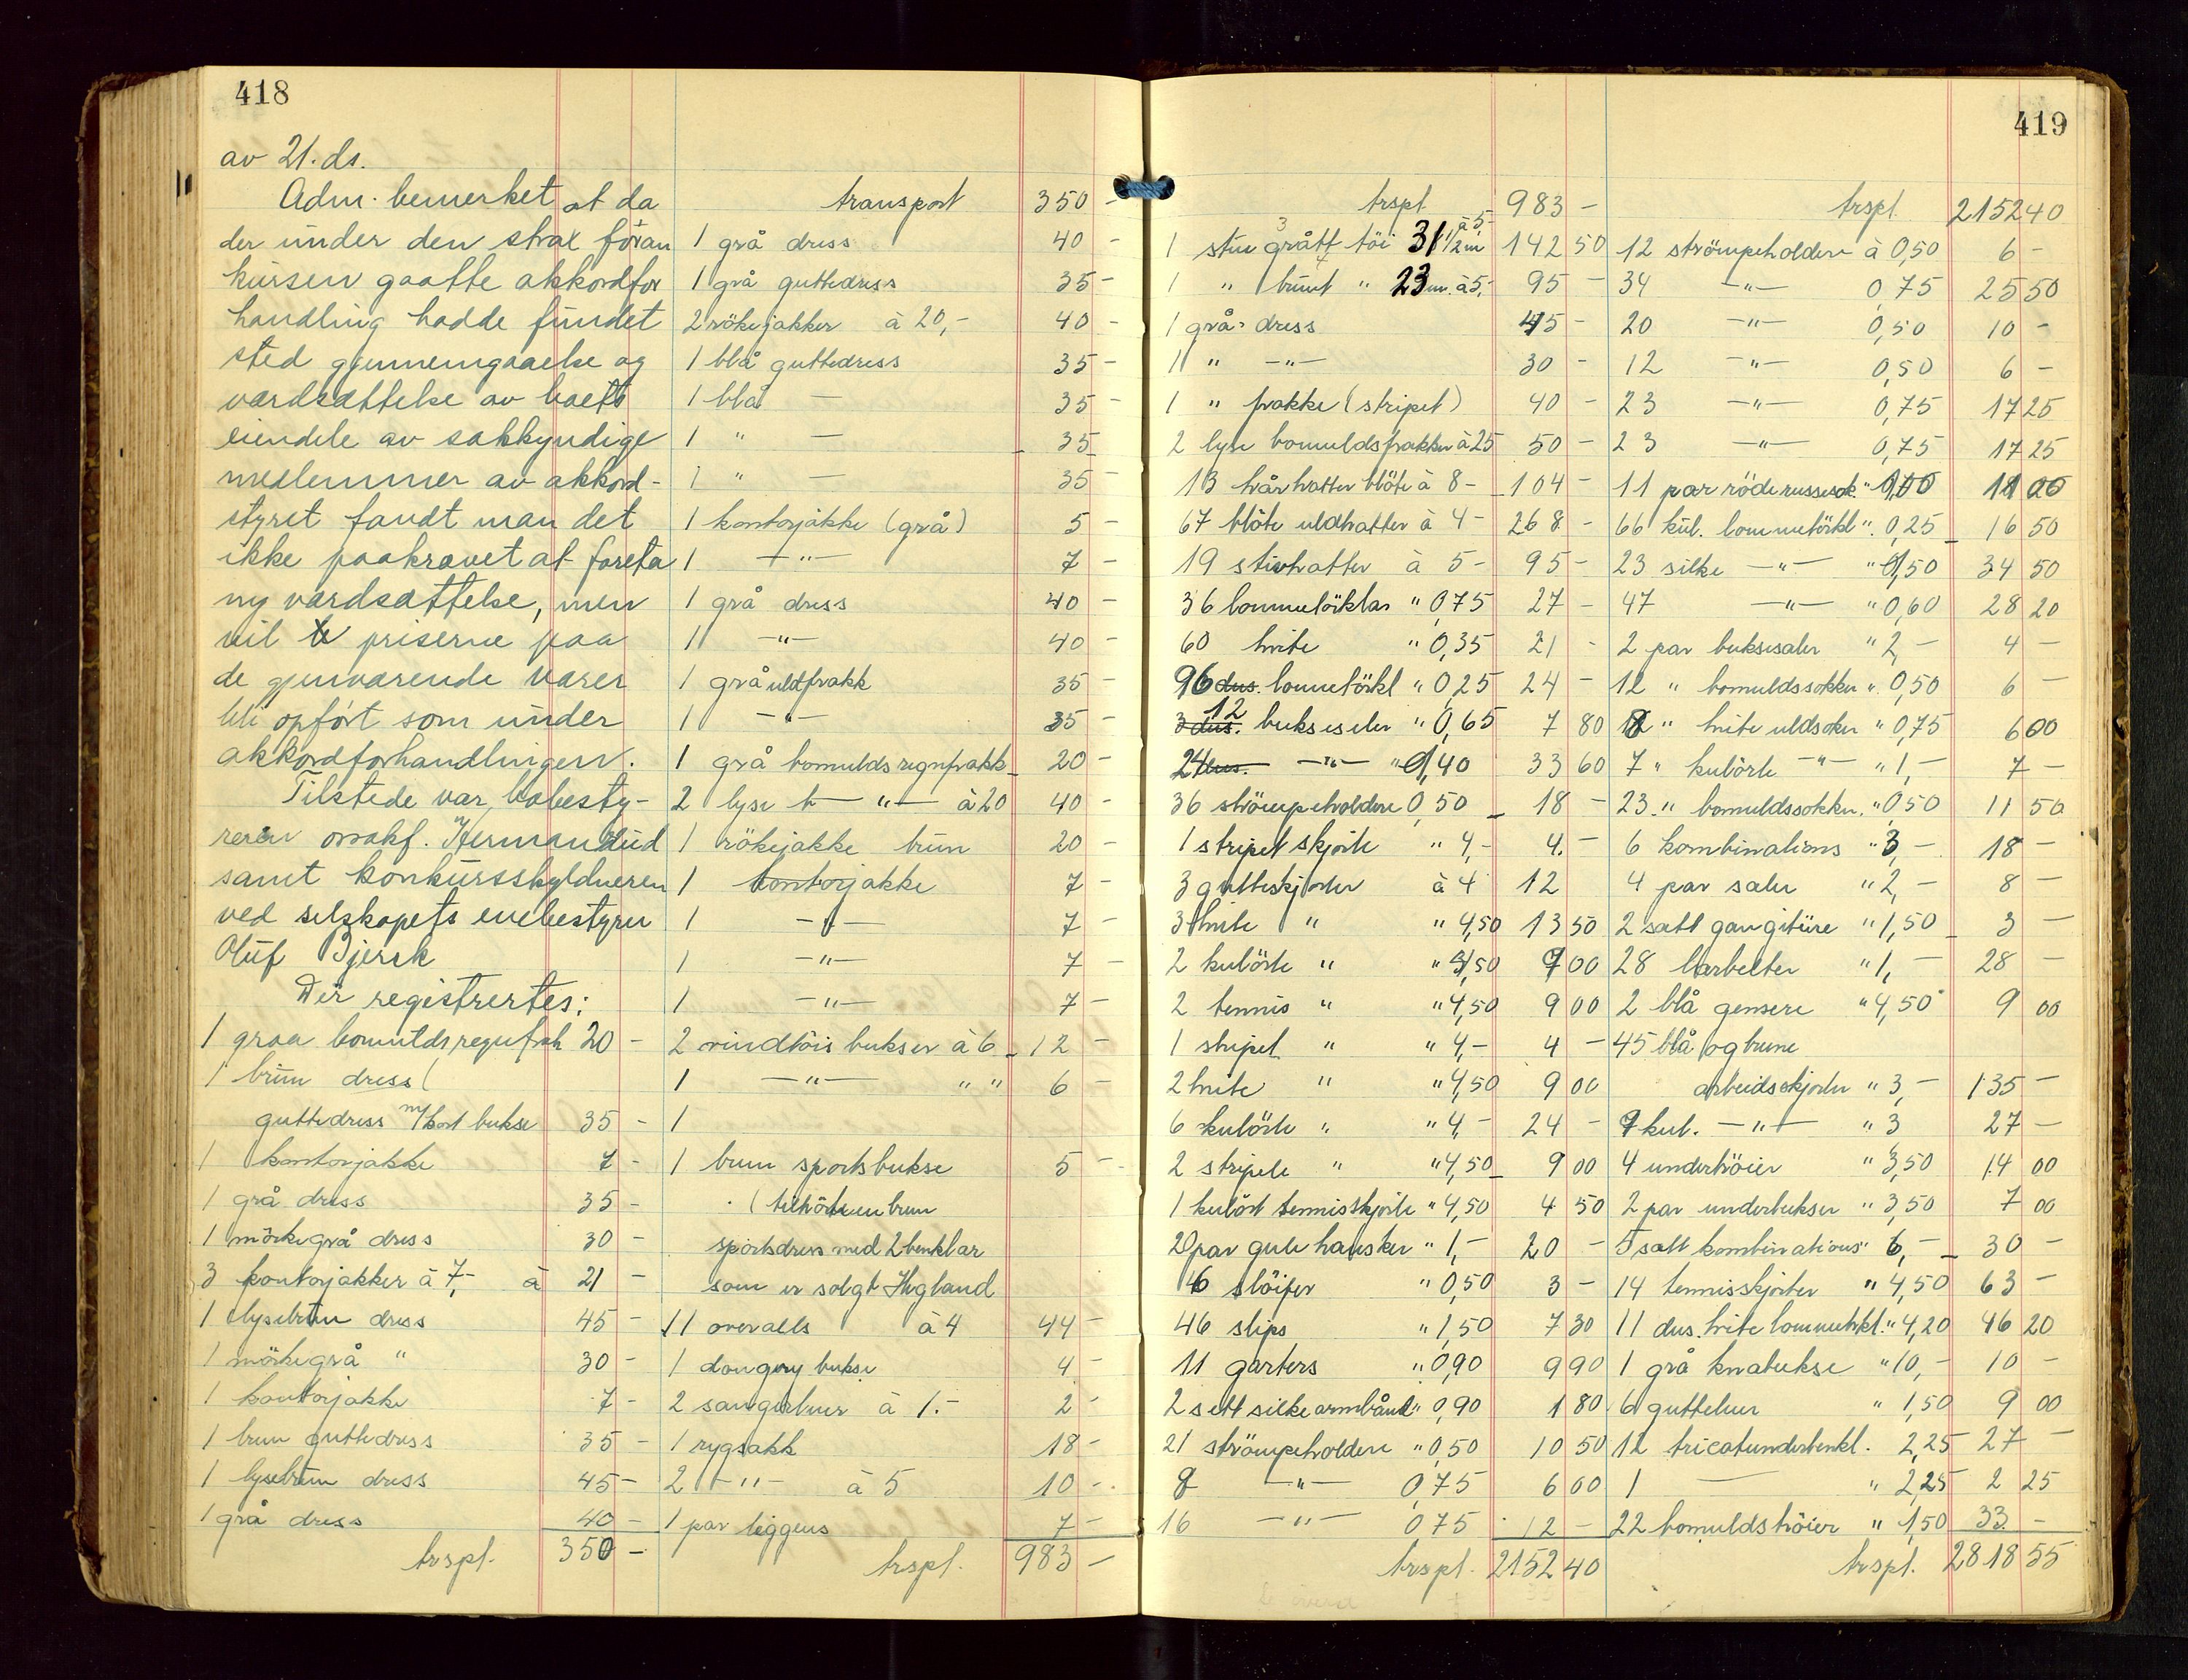 418
av 21. ds.
Adm. bemerket at da
der under den strax foran
kursen gaatte akkordfor
handling hadde fundet
sted gjennemgaaelse og
værdsættelse av boets
eiendele av sakkyndige
medlemmer av akkord-
styret fandt man det
ikke paakrævet at foreta
ny værdsættelse, men
vil priserne paa
de gjenværende varer
bli opført som under
akkordforhandlingen.
Tilstede var bobesty-
reren o.r.sakf. Hermanrud
samt konkursskyldneren
ved selskapets enebestyrer
Oluf Bjersk
Der registrertes:
1 graa bomulds regnfrak 20 -
1 brun dress (
guttedress m/kort bukse 35 -
1 kontorjakke 7 -
1 grå dress 35 -
1 mørkegrå dress 30 -
3 kontorjakker à 7,- à 21 -
1 lysebrun dress 45 -
1 mørkegrå " 30 -
1 kontorjakke 7 -
1 brun guttedress 35 -
1 lysebrun dress 45 -
1 grå dress 40 -
trspt. 350 -
transport 350 -
1 grå dress 40 -
1 grå guttedress 35 -
2 rökejakker à 20,- 40 -
1 blå guttedress 35 -
1 blå — 35 -
1 " — 35 -
1 " — 35 -
1 kontorjakke (grå) 5 -
1 —"— 7 -
1 grå dress 40 -
1 —"— 40 -
1 grå uldfrakk 35 -
1 —"— 35 -
1 grå bomulds regnfrakk 20 -
2 lyse b —"— à 20 40 -
1 rökejakke brun 20 -
1 kontorjakke 7 -
1 —"— 7 -
1 —"— 7 -
1 —"— 7 -
2 vindtöis bukser à 6 12 -
1 —"— " " 6 -
1
1 brun sportsbukse 5 -
(tilhörte en brun
sportsdress med 2 benklær
som er solgt Hegland
11 overalls à 4 44 -
1 dongery bukse 4 -
2 sangerluer à 1.- 2 -
1 rygsakk 18 -
2 —"— à 5 10 -
1 par leggens 7 -
trspt. 983 -
419
trspt 983 -
1 stue grått töi 31 1/2 m à 5 142 50
1 " brunt " 23 m. à 5,- 95 -
1 grå dress 45 -
1 " —"— 30 -
1 " frakke (stripet) 40 -
2 lyse bomuldsfrakker à 25 50 -
13 hårhatter blöte à 8 - 104 -
67 blöte uldhatter à 4 - 268 -
19 stivhatter à 5 - 95 -
36 lommetörklær " 0,75 27 -
60 hvite " 0,35 21 -
96 dus. lommetörkl " 0,25 24 -
3 dus. 12 bukseseler " 0,65 7 80
24 dus. —"— " 1,40 33 60
36 strömpeholdere 0,50 18 -
1 stripet skjorte " 4,- 4.-
3 gutteskjorter à 4 12
3 hvite " " 4,50 13 50
2 kulörte " " 4,50 9 00
2 tennis " " 4,50 9 00
1 stripet " " 4,- 4 -
2 hvite " " 4,50 9 00
6 kulörte " " 4,- 24 -
2 stripete " " 4,50 9 00
1 kulört tennisskjorte " 4,50 4 50
20 par gule hansker " 1,- 20 -
6 slöifer " 0,50 3 -
46 slips " 1,50 7 30
11 garters " 0,90 9 90
2 sett silke armbånd " 0,90 1 80
21 strömpeholdere " 0,50 10 50
8 —"— 0,75 6 00
16 —"— 0,75 12 -
trspt. 2152 40
trspt 2152 40
12 strömpeholdere à 0,50 6 -
34 —"— 0,75 25 50
20 —"— 0,50 10 -
12 —"— 0,50 6 -
23 —"— 0,75 17 25
23 —"— 0,75 17 25
11 par röde russesok. " 1,00 11 00
66 kul. lommetörkl " 0,25 16 50
23 silke —"— " 1,50 34 50
47 —"— " 0,60 28 20
2 par buksesæler " 2,- 4 -
12 " bomuldssokker " 0,50 6 -
8 " hvite uldsoker " 0,75 6 00
7 " kulörte —"— " 1,- 7 -
23 " bomuldssokker " 0,50 11 50
6 kombinations " 3,- 18 -
4 par sæler " 2,- 8 -
2 satt gangitüre " 1,50 3 -
28 barbelter " 1,- 28 -
2 blå gensere " 4,50 9 00
45 blå og brune
arbeidsskjorter " 3,- 135 -
9 kul. —"— " 3 27 -
4 undertröier " 3,50 14 00
2 par underbukser " 3,50 7 00
5 satt kombinations " 6,- 30 -
14 tennisskjorter " 4,50 63 -
11 dus. hvite lommetrkl. " 4,20 46 20
1 grå knæbukse " 10,- 10 -
6 gutteluer " 1,50 9 00
12 tricotunderbenkl. 2,25 27 -
1 — " 2,25 2 25
22 bomuldströier " 1,50 33 -
trspt. 2818 55